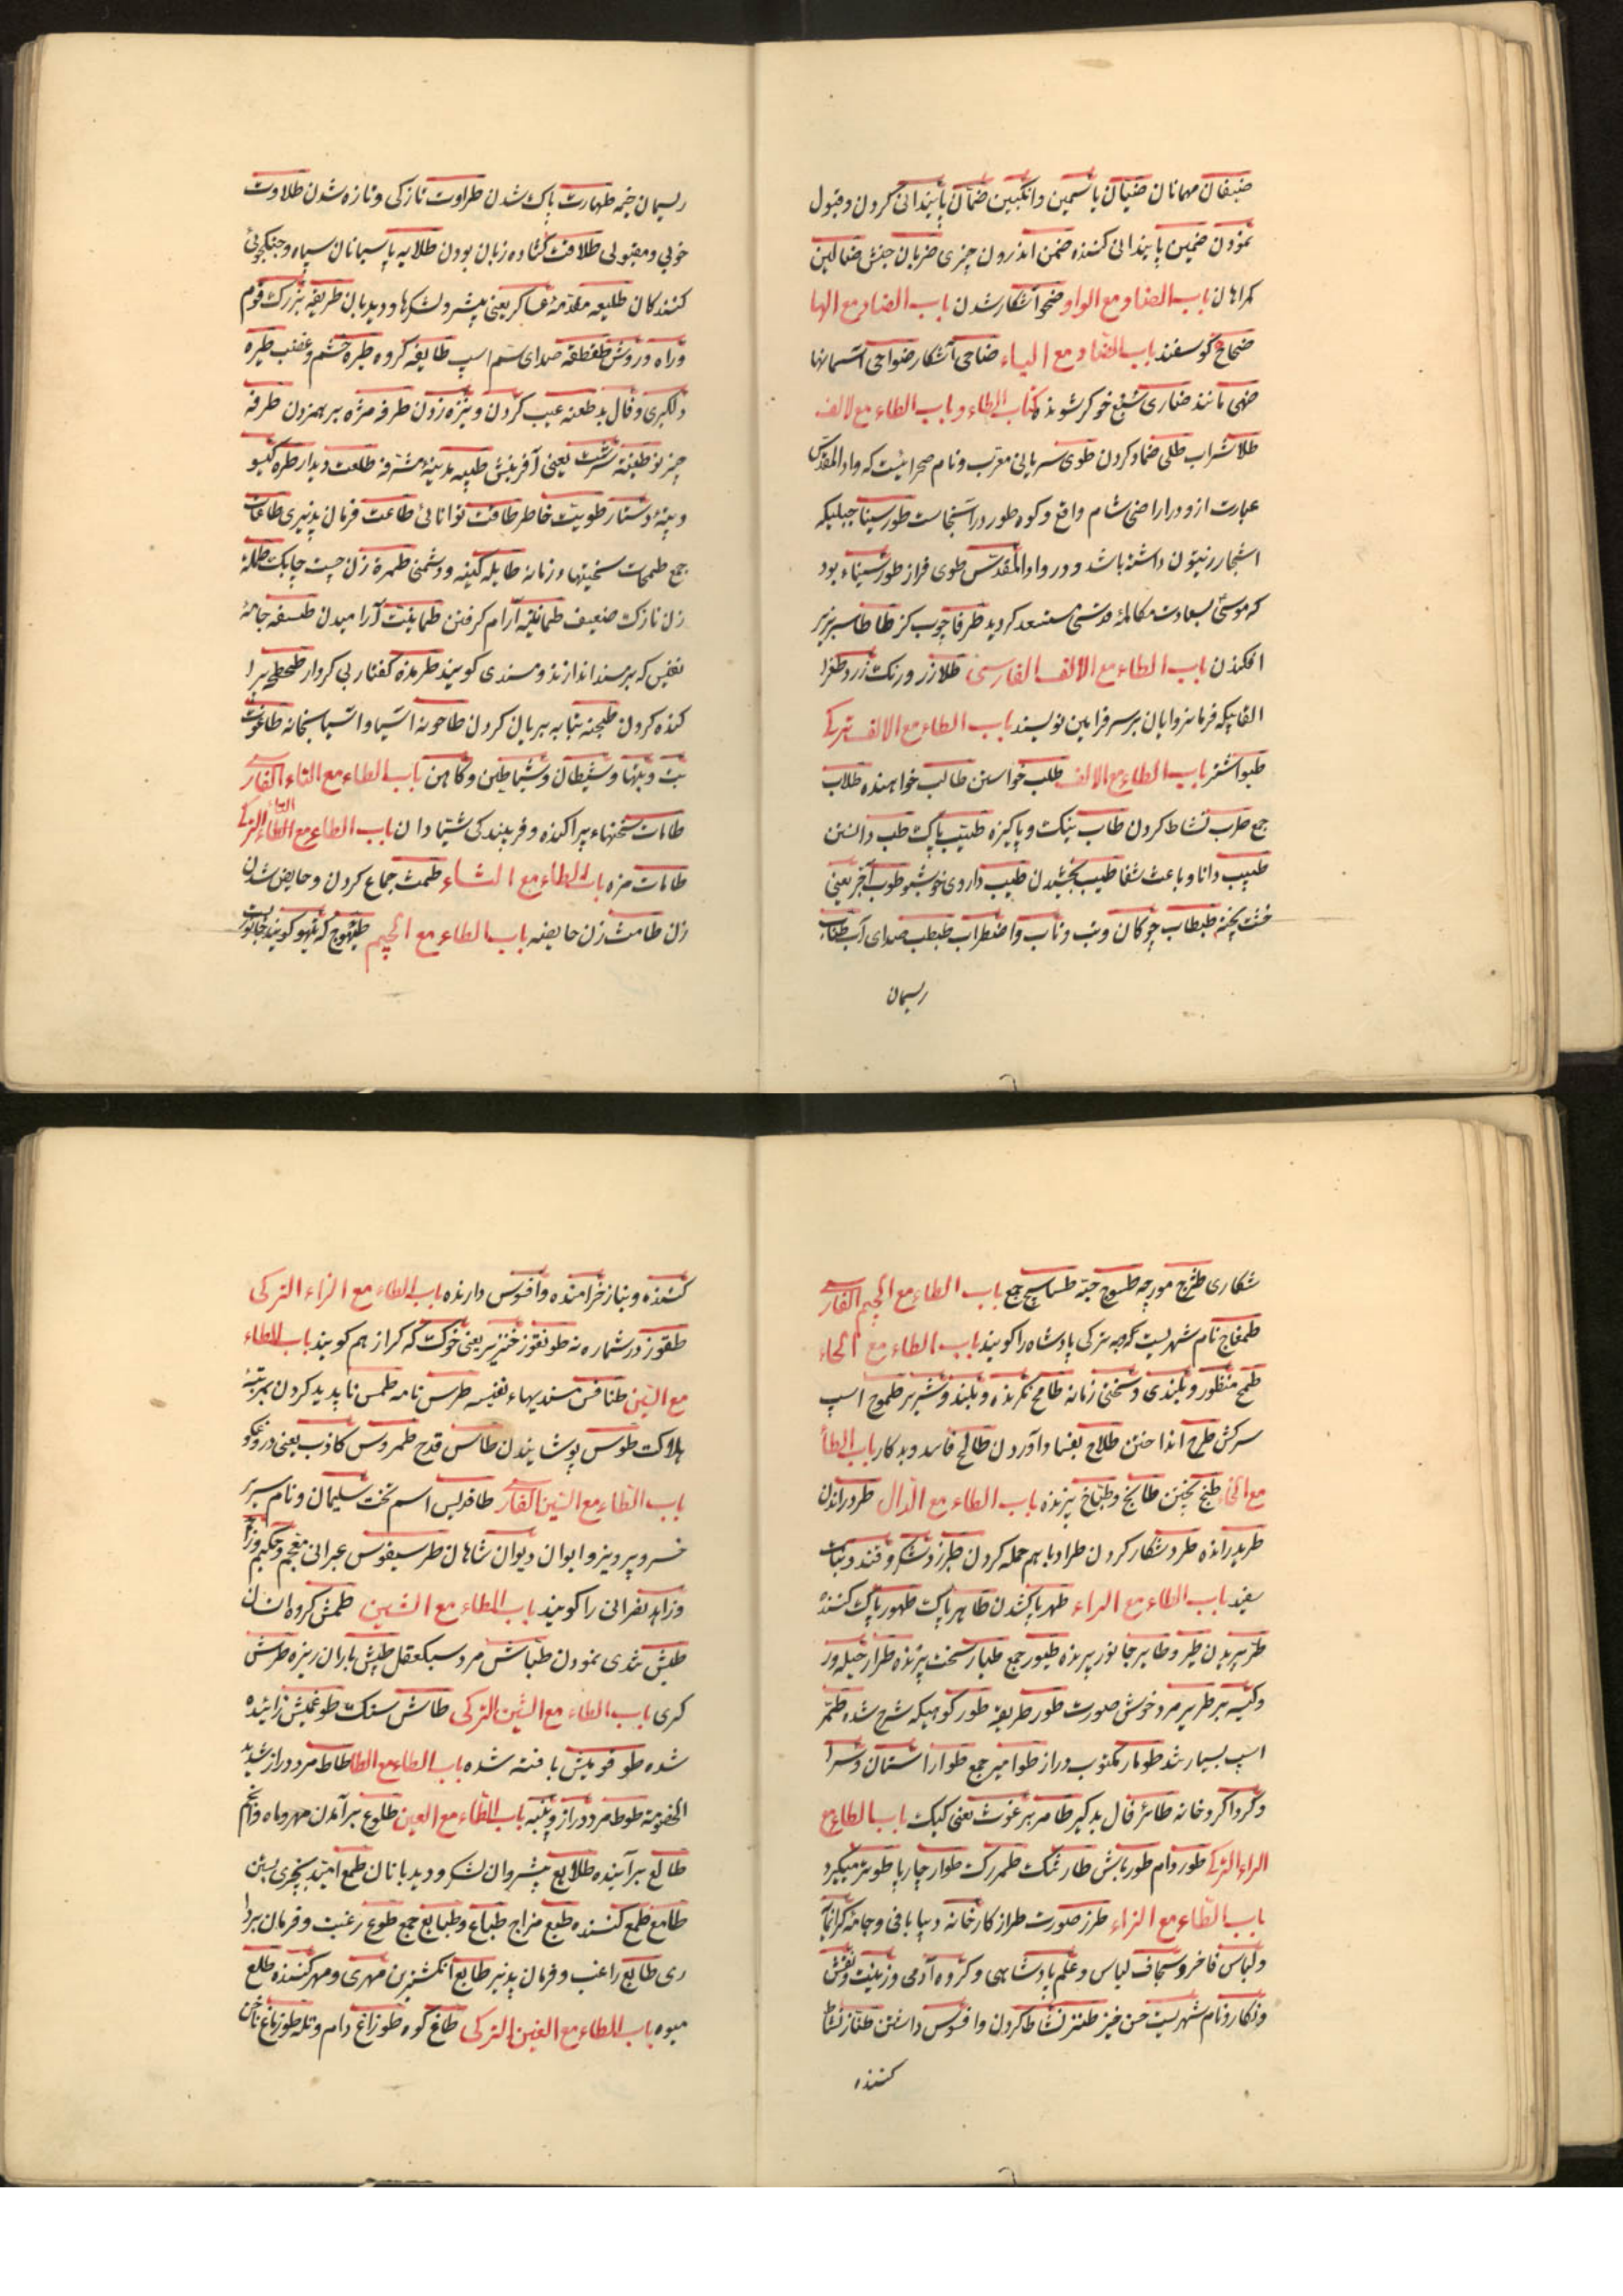 ضیفان مهمانان ضیان یاسمین وانکبین ضمان پایندانی کردن وقبول
نمودن ضمین پایندانی کننده ضمن اندرون چیزی ضربان جنبش ضالین
کمراهان باب الضاد مع الواو ضحو آشکار شدن باب الضاد مع الها
کوسفند باب الضاد مع الیاء ضاحی آشکار ضواحی آسمانها
ضهی مانند ضاری خوکر شونده کتاب الطاء و باب الطاء مع لالف
طلا شراب طلی ضماد کردن طوی سریانی معرب ونام صحرائیست که واد المقدس
عبارت ازو ودر اراضی شام واقع وکوه طور در آنجاست طور سینا جبلیکه
اشجار زیتون داشته باشد ودر واد المقدس طوی فراز طور سیناء بود
که موسی بسعادت مکالمهٔ قدسی مستسعد کردید طرفا چوب کز طاطا سر بزیر
افکندن باب الطاء مع الالف الفارسی طلا زر ورنک زرد طغرا
القابیکه فرمانروایان بر سر فرامین نویسند باب الطاء مع الالف ترکی
طبوا شتر باب الطاء مع الالف طلب خواستن طالب خواهنده طلاب
جمع طرب نشاط کردن طاب نیک وپاکیزه طیب پاک طب دانستن
طبیب دانا وباعث شفا طیب بخشیدن طیب داروی خوشبو طوب آجر یعنی
خشت پخته طبطاب چوکان وتب وتاب واضطراب طبطب صدای آب طناب
ریسمان
ریسمان خیمه طهارت پاک شدن طراوت نازکی وتازه شدن طلاوت
خوبی ومقبولی طلاقت کشاده زبان بودن طلایه پاسبانان سپاه وجنکجویی
کنندکان طلیعه مقدمهٔ عساکر یعنی پیشرو لشکرها ودیدبان طریقه بزرک قوم
وراه وروش طقطقه صدای سم اسپ طایفه کروه طیره خشم وغضب طیره
دلکیری وفال بد طعنه عیب کردن ونیزه زدن طرفه مژه بر همزدن طرفه
چیز نو طینة سرشت یعنی آفرینش طیبه مدینهٔ مشرفه طلعت دیدار طره کیسو
وپیچهٔ دستار طویت خاطر طاقت توانائی طاعت فرمان پذیری طاعات
جمع طمحات سختیها زمانه طایله کینه ودشمنی طمرة زن چست چابک طفله
زن نازک ضعیف طمانینه آرام کرفتن طمانینت آرامیدن طنفسه جامهٔ
نفیس که بر مسند اندازند ومسندی کویند طرمذه کفتار بی کردار
کنده کردن طیجنه بتابه بریان کردن طاحونه آسیا وآسیابخانه طاغوت
بت وبتها وشیطان وشیاطین وکاهن باب الطاء مع التاء الفارسی
طامات سخنهاء پراکنده وفریبندکی شیادان باب الطاء مع التاء الترکی
طامات مزه باب الطاء مع الثاء طمث جماع کردن وحایض شدن
زن طامث زن حایضه باب الطاء مع الجیم طیهوج که تیهو کویند جانور
شکاری طنزج مورچه طسوج حبه طساسیج جمع باب الطاء مع الجیم الفارسی
طمغاج نام شهریست که به ترکی پادشاه را کویند باب الطاء مع الحاء
طمح منظور وبلندی وسختی زمانه طامح نکرنده وبلند وشریر طموح اسپ
سرکش طرح انداختن طلاح بفساد آوردن طالح فاسد وبد کار باب الطاء
مع الخاء طبخ پختن طابخ وطباخ پزنده باب الطاء مع الدال طرد راندن
طرید رانده طرد شکار کردن طراد باهم حمله کردن طبرزد شکر وقند ونبات
سفید باب الطاء مع الراء طهر پاکشدن طاهر پاک طهور پاک کننده
طیر پریدن طیر وطایر جانور پرنده طیور جمع طیار سخت پرنده طرار حیله ور
وکیسه بر طریر مرد خوش صورت طور طریقه طور کوهیکه شرح شده طمر
اسب بسیار تند طومار مکتوب دراز طوامیر جمع طوار آستان وسرا
وکرداکرد خانه طائر فال بد کیر طامر برغوث یعنی کیک باب الطاء مع
الراء الترکی طور دام طور باش طار تنک طمر رک طوار چارپا طوتر میکیرد
باب الطاء مع الزاء طرز صورت طراز کارخانه دیبا بافی وجامهٔ کرانبها
ولباس فاخر وسجاف لباس وعلم پادشاهی وکروه آدمی وزینت ونقش
ونکار ونام شهریست حسن خیز طنز نشاط کردن وافسوس داشتن طناز نشاط
کننده
کننده وبناز خرامنده وافسوس دارنده باب الطاء مع الزاء الترکی
طقوز در شماره نه طونقوز خنزیر یعنی خوک که کراز هم کویند باب الطاء
مع السین طنافس مسندیهاء نفیسه طرس نامه طمس ناپدید کردن بمرتبهٔ
هلاکت طوس پوشانیدن طاس قدح طمروس کاذب یعنی دروغکو
باب الطاء مع السین الفارسی طاقدیس اسم تخت سلیمان ونام سریر
خسرو پرویز وایوان دیوان شاهان طرسیقوس عبرانی معجم وحکیم
وزاهد نصرانی را کویند باب الطاء مع الشین طمش کروه انسان
طیش تندی نمودن طیاش مرد سبکعقل طش باران ریزه طرش
کری باب الطاء مع الشین الترکی طاش سنک طوغمش زائیده
شده طوقومش بافته شده باب الطاء مع الطا طاط مرد دراز شدید
الخصومة طوط مرد دراز وپنبه باب الطاء مع العین طلوع برآمدن مهر وماه وانجم
طالع برآینده طلایع پیشروان لشکر ودیدبانان طمع امید بچیزی بستن
طامع طمع کننده طبع مزاج طباع وطبایع جمع طوع رغبت وفرمان بردا
ری طایع راغب وفرمان پذیر طابع انکشترین مهری ومهر کننده طلع
میوه باب الطاء مع الغین الترکی طاغ کوه طوزاغ دام وتله